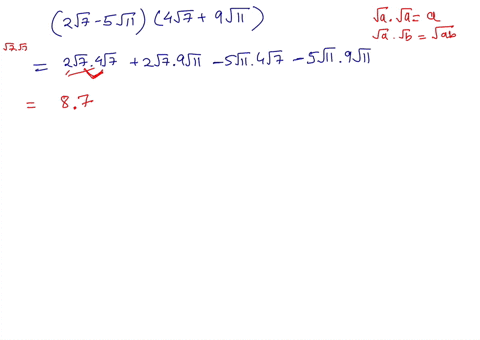 (2√7 - 5√11) (4√7 + 9√11)
√a . √a = a
√a . √b = √ab
= 2√7 . 4√7 + 2√7 . 9√11 - 5√11 . 4√7 - 5√11 . 9√11
= 8.7